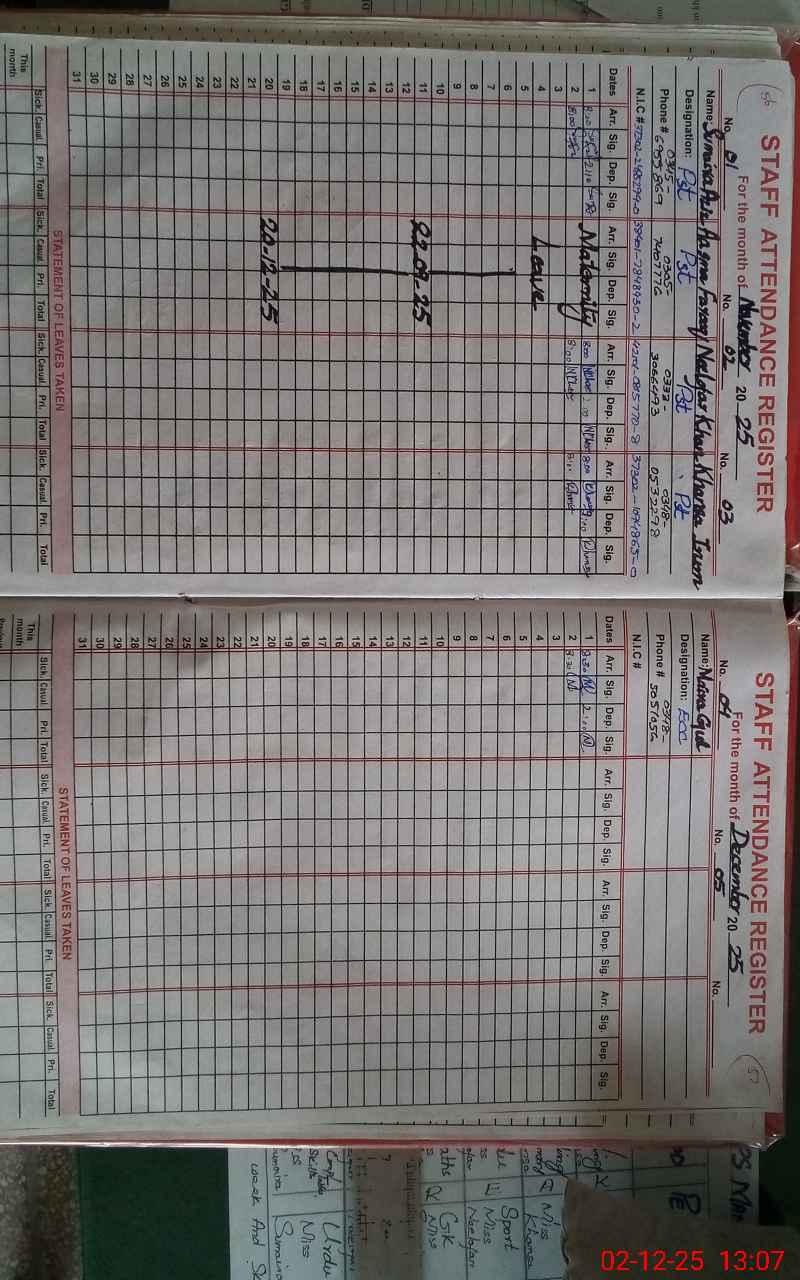 56
STAFF ATTENDANCE REGISTER
For the month of November 20 25
No. 01 No. 02 No. 03
Name: Sumaira Aziz Aasma Farooq Neelofar Khan Khansa Inum
Designation: Pst Pst Pst Pst
Phone # 0345-6955869 0305-7407776 0333-3066493 0348-0532298
N.I.C # 38401-7848930-2
Dates Arr. Sig. Dep. Sig. Arr. Sig. Dep. Sig. Arr. Sig. Dep. Sig. Arr. Sig. Dep. Sig.
1 8:00 2:10 Maternity 8:00
2 8:00 8:00
3
4 Leave
5
6
7
8
9
10
11 22-09-25
12
13
14
15
16
17
18
19
20 20-12-25
21
22
23
24
25
26
27
28
29
30
31
STATEMENT OF LEAVES TAKEN
Sick. Casual Pri. Total Sick. Casual Pri. Total Sick. Casual Pri. Total Sick. Casual Pri. Total
This month
57
STAFF ATTENDANCE REGISTER
For the month of December 20 25
No. 04 No. 05 No.
Name: Maina Gul
Designation: ECC
Phone # 0348-5051056
N.I.C #
Dates Arr. Sig. Dep. Sig. Arr. Sig. Dep. Sig. Arr. Sig. Dep. Sig. Arr. Sig. Dep. Sig.
1 8:30 (N) 2:00 (N)
2 8:30 (N)
3
4
5
6
7
8
9
10
11
12
13
14
15
16
17
18
19
20
21
22
23
24
25
26
27
28
29
30
31
STATEMENT OF LEAVES TAKEN
Sick. Casual Pri. Total Sick. Casual Pri. Total Sick. Casual Pri. Total Sick. Casual Pri. Total
This month
Previous
Miss Khansa
Sport
Miss Neelofar
GK
Miss
Urdu
Miss
Sumaira
week And
02-12-25 13:07